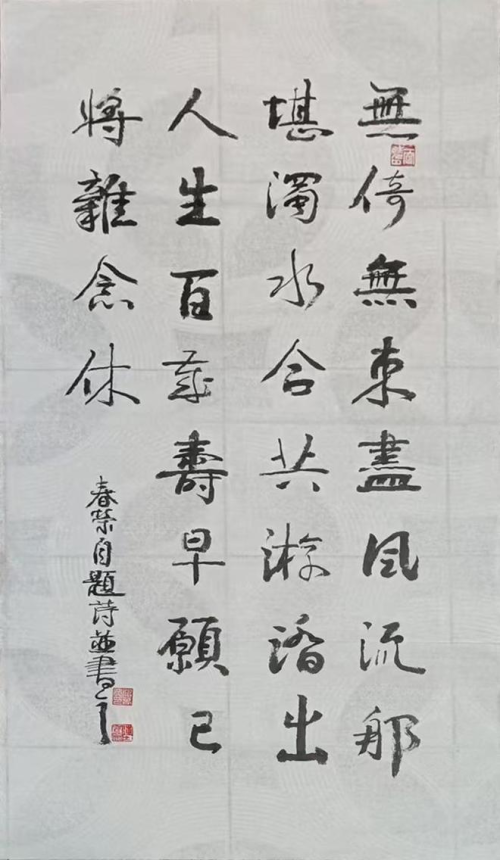 無倚無束盡風流那
堪濁水合共游踏出
人生百歲壽早願已
將雜念休
春榮自題詩並書之